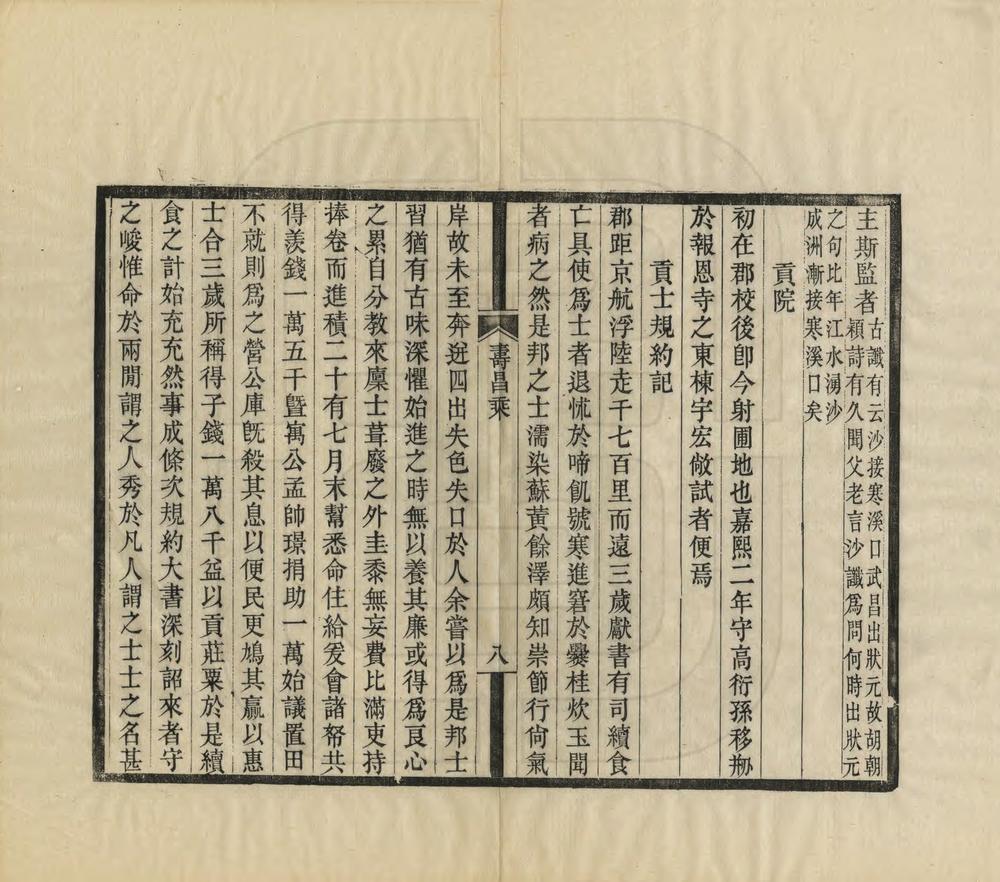 主斯監者古讖有云沙接寒溪口武昌出狀元故胡朝
潁詩有久聞父老言沙讖爲問何時出狀元
之句比年江水湧沙
成洲漸接寒溪口矣
貢院
初在郡校後卽今射圃地也嘉熙二年守高衍孫移刱
於報恩寺之東棟宇宏敞試者便焉
貢士規約記
郡距京航浮陸走千七百里而遠三歲獻書有司續食
亡具使爲士者退怵於啼飢號寒進窘於爨桂炊玉聞
者病之然是邦之士濡染蘇黃餘澤頗知崇節行尙氣
壽昌乘
八
岸故未至奔逬四出失色失口於人余嘗以爲是邦士
習猶有古味深懼始進之時無以養其廉或得爲良心
之累自分教來廩士葺廢之外圭黍無妄費比滿吏持
捧卷而進積二十有七月末幫悉命住給爰會諸帑共
得羨錢一萬五千曁寓公孟帥璟捐助一萬始議置田
不就則爲之營公庫旣殺其息以便民更鳩其贏以惠
士合三歲所稱得子錢一萬八千益以貢莊粟於是續
食之計始充充然事成條次規約大書深刻詔來者守
之峻惟命於兩閒謂之人秀於凡人謂之士士之名甚